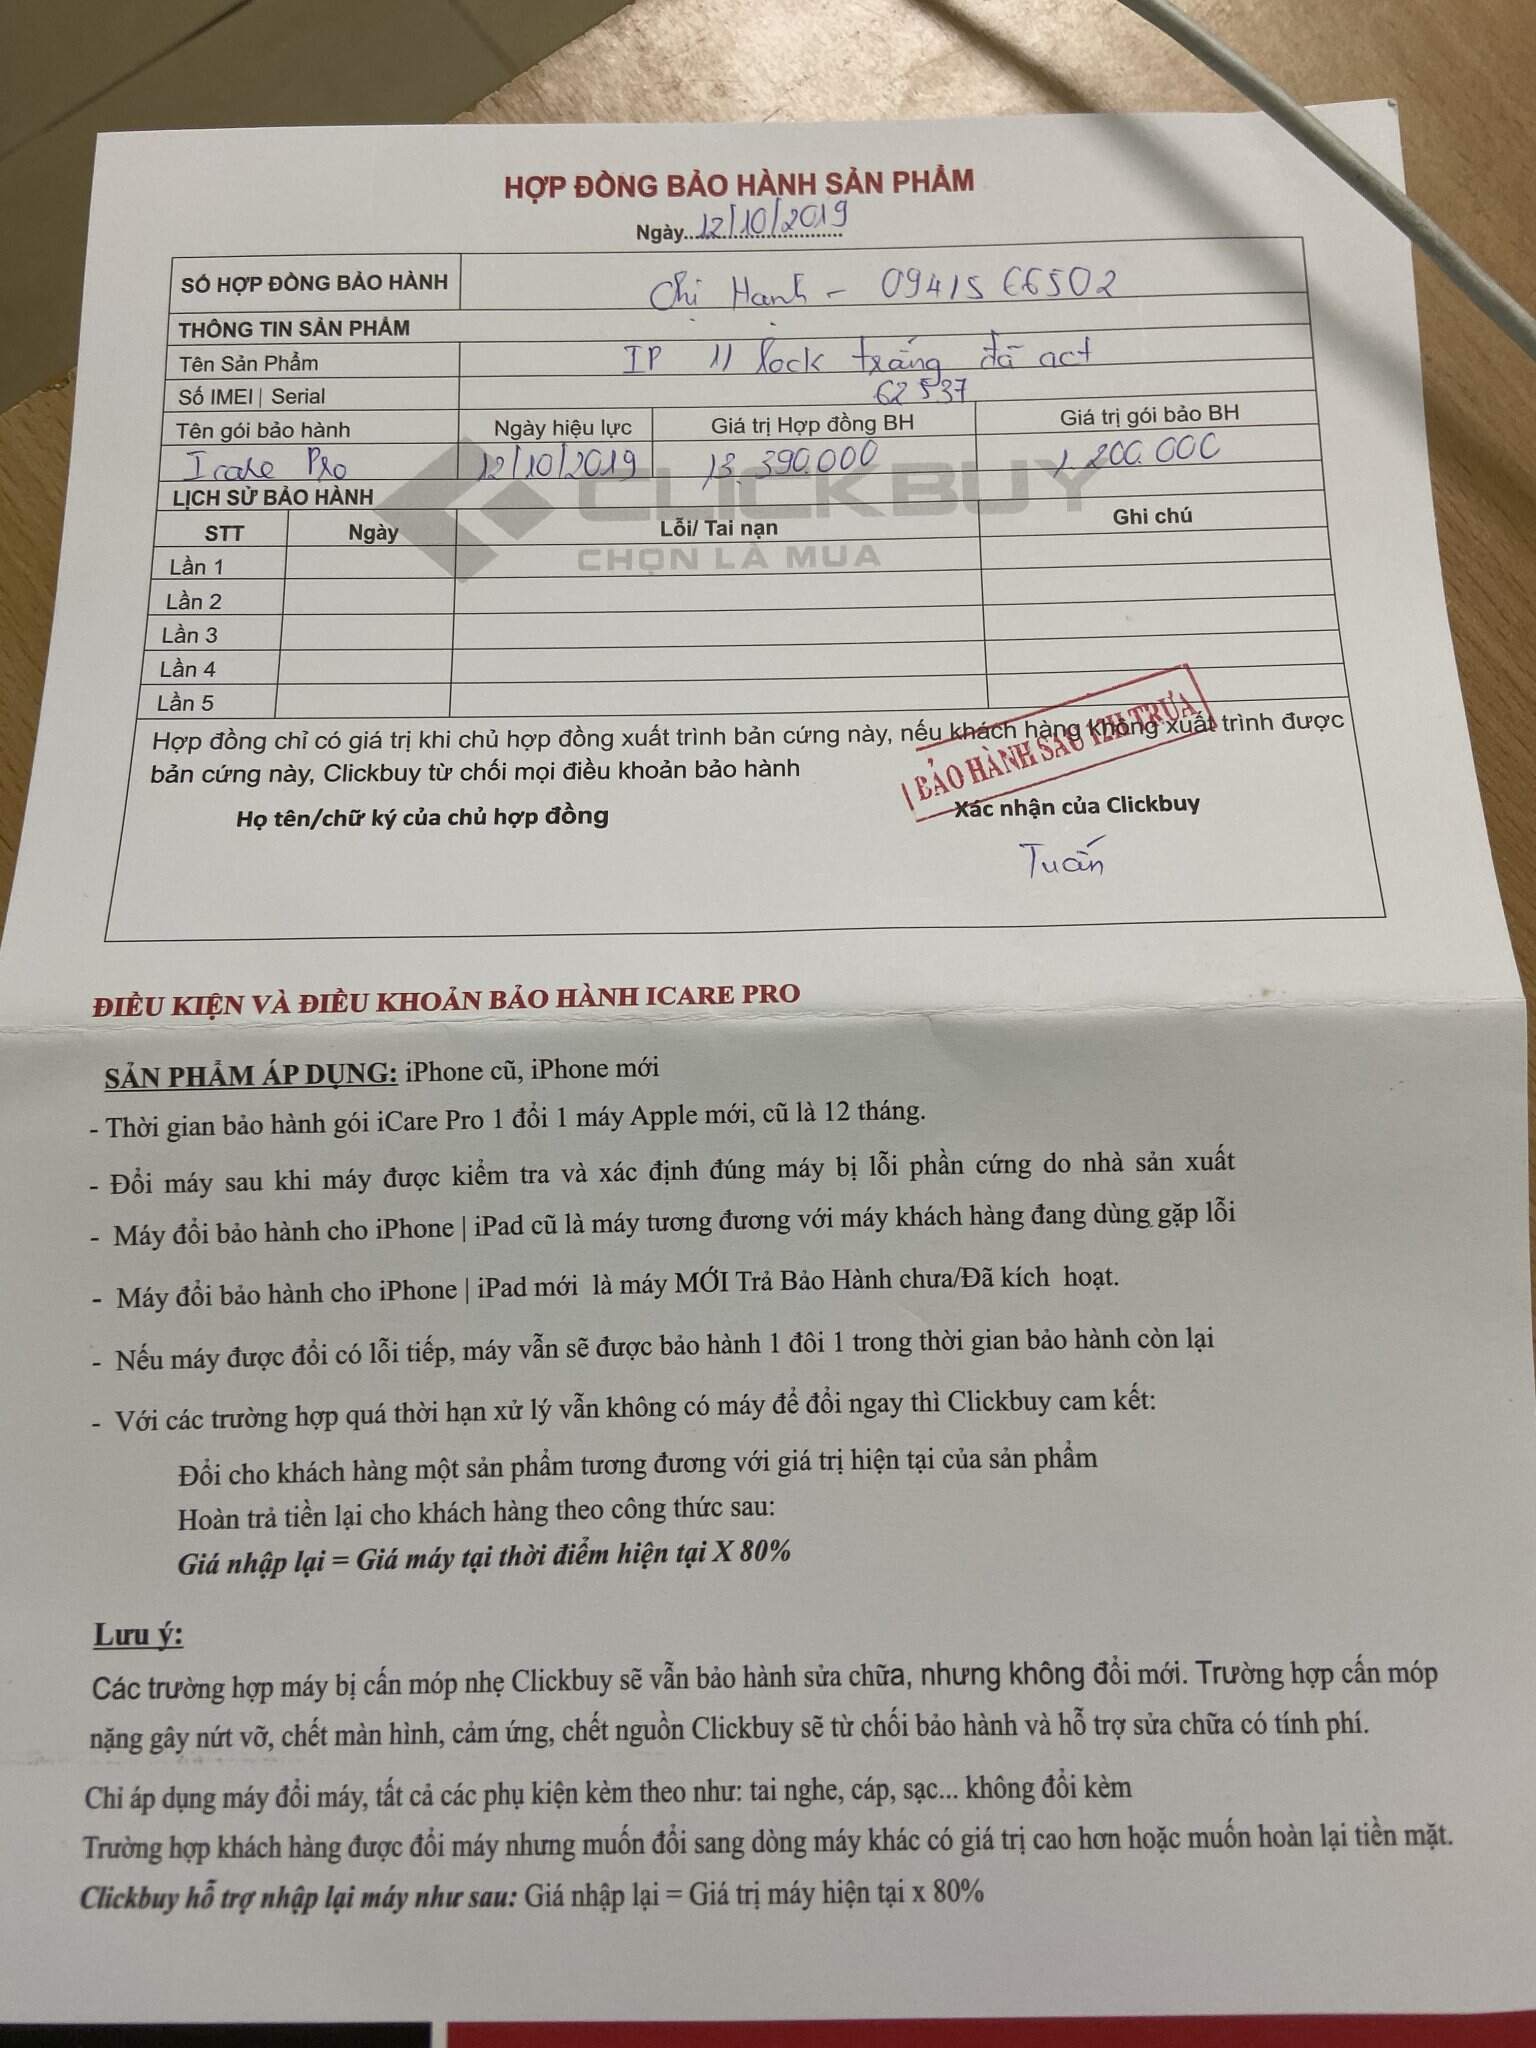 HỢP ĐỒNG BẢO HÀNH SẢN PHẨM
Ngày...12/10/2019
SỐ HỢP ĐỒNG BẢO HÀNH Chị Hạnh - 0941566502
THÔNG TIN SẢN PHẨM
Tên Sản Phẩm IP 11 lock trắng đã act
Số IMEI | Serial 62537
Tên gói bảo hành Ngày hiệu lực Giá trị Hợp đồng BH Giá trị gói bảo BH
Icare Pro 12/10/2019 13.390.000 1.200.000
LỊCH SỬ BẢO HÀNH
CLICKBUY
CHỌN LÀ MUA
STT Ngày Lỗi/ Tai nạn Ghi chú
Lần 1
Lần 2
Lần 3
Lần 4
Lần 5
BẢO HÀNH SAU 12H TRƯA
Hợp đồng chỉ có giá trị khi chủ hợp đồng xuất trình bản cứng này, nếu khách hàng không xuất trình được
bản cứng này, Clickbuy từ chối mọi điều khoản bảo hành
Họ tên/chữ ký của chủ hợp đồng Xác nhận của Clickbuy
Tuấn
ĐIỀU KIỆN VÀ ĐIỀU KHOẢN BẢO HÀNH ICARE PRO
SẢN PHẨM ÁP DỤNG: iPhone cũ, iPhone mới
- Thời gian bảo hành gói iCare Pro 1 đổi 1 máy Apple mới, cũ là 12 tháng.
- Đổi máy sau khi máy được kiểm tra và xác định đúng máy bị lỗi phần cứng do nhà sản xuất
- Máy đổi bảo hành cho iPhone | iPad cũ là máy tương đương với máy khách hàng đang dùng gặp lỗi
- Máy đổi bảo hành cho iPhone | iPad mới là máy MỚI Trả Bảo Hành chưa/Đã kích hoạt.
- Nếu máy được đổi có lỗi tiếp, máy vẫn sẽ được bảo hành 1 đôi 1 trong thời gian bảo hành còn lại
- Với các trường hợp quá thời hạn xử lý vẫn không có máy để đổi ngay thì Clickbuy cam kết:
Đổi cho khách hàng một sản phẩm tương đương với giá trị hiện tại của sản phẩm
Hoàn trả tiền lại cho khách hàng theo công thức sau:
Giá nhập lại = Giá máy tại thời điểm hiện tại X 80%
Lưu ý:
Các trường hợp máy bị cấn móp nhẹ Clickbuy sẽ vẫn bảo hành sửa chữa, nhưng không đổi mới. Trường hợp cấn móp
nặng gây nứt vỡ, chết màn hình, cảm ứng, chết nguồn Clickbuy sẽ từ chối bảo hành và hỗ trợ sửa chữa có tính phí.
Chỉ áp dụng máy đổi máy, tất cả các phụ kiện kèm theo như: tai nghe, cáp, sạc... không đổi kèm
Trường hợp khách hàng được đổi máy nhưng muốn đổi sang dòng máy khác có giá trị cao hơn hoặc muốn hoàn lại tiền mặt.
Clickbuy hỗ trợ nhập lại máy như sau: Giá nhập lại = Giá trị máy hiện tại x 80%